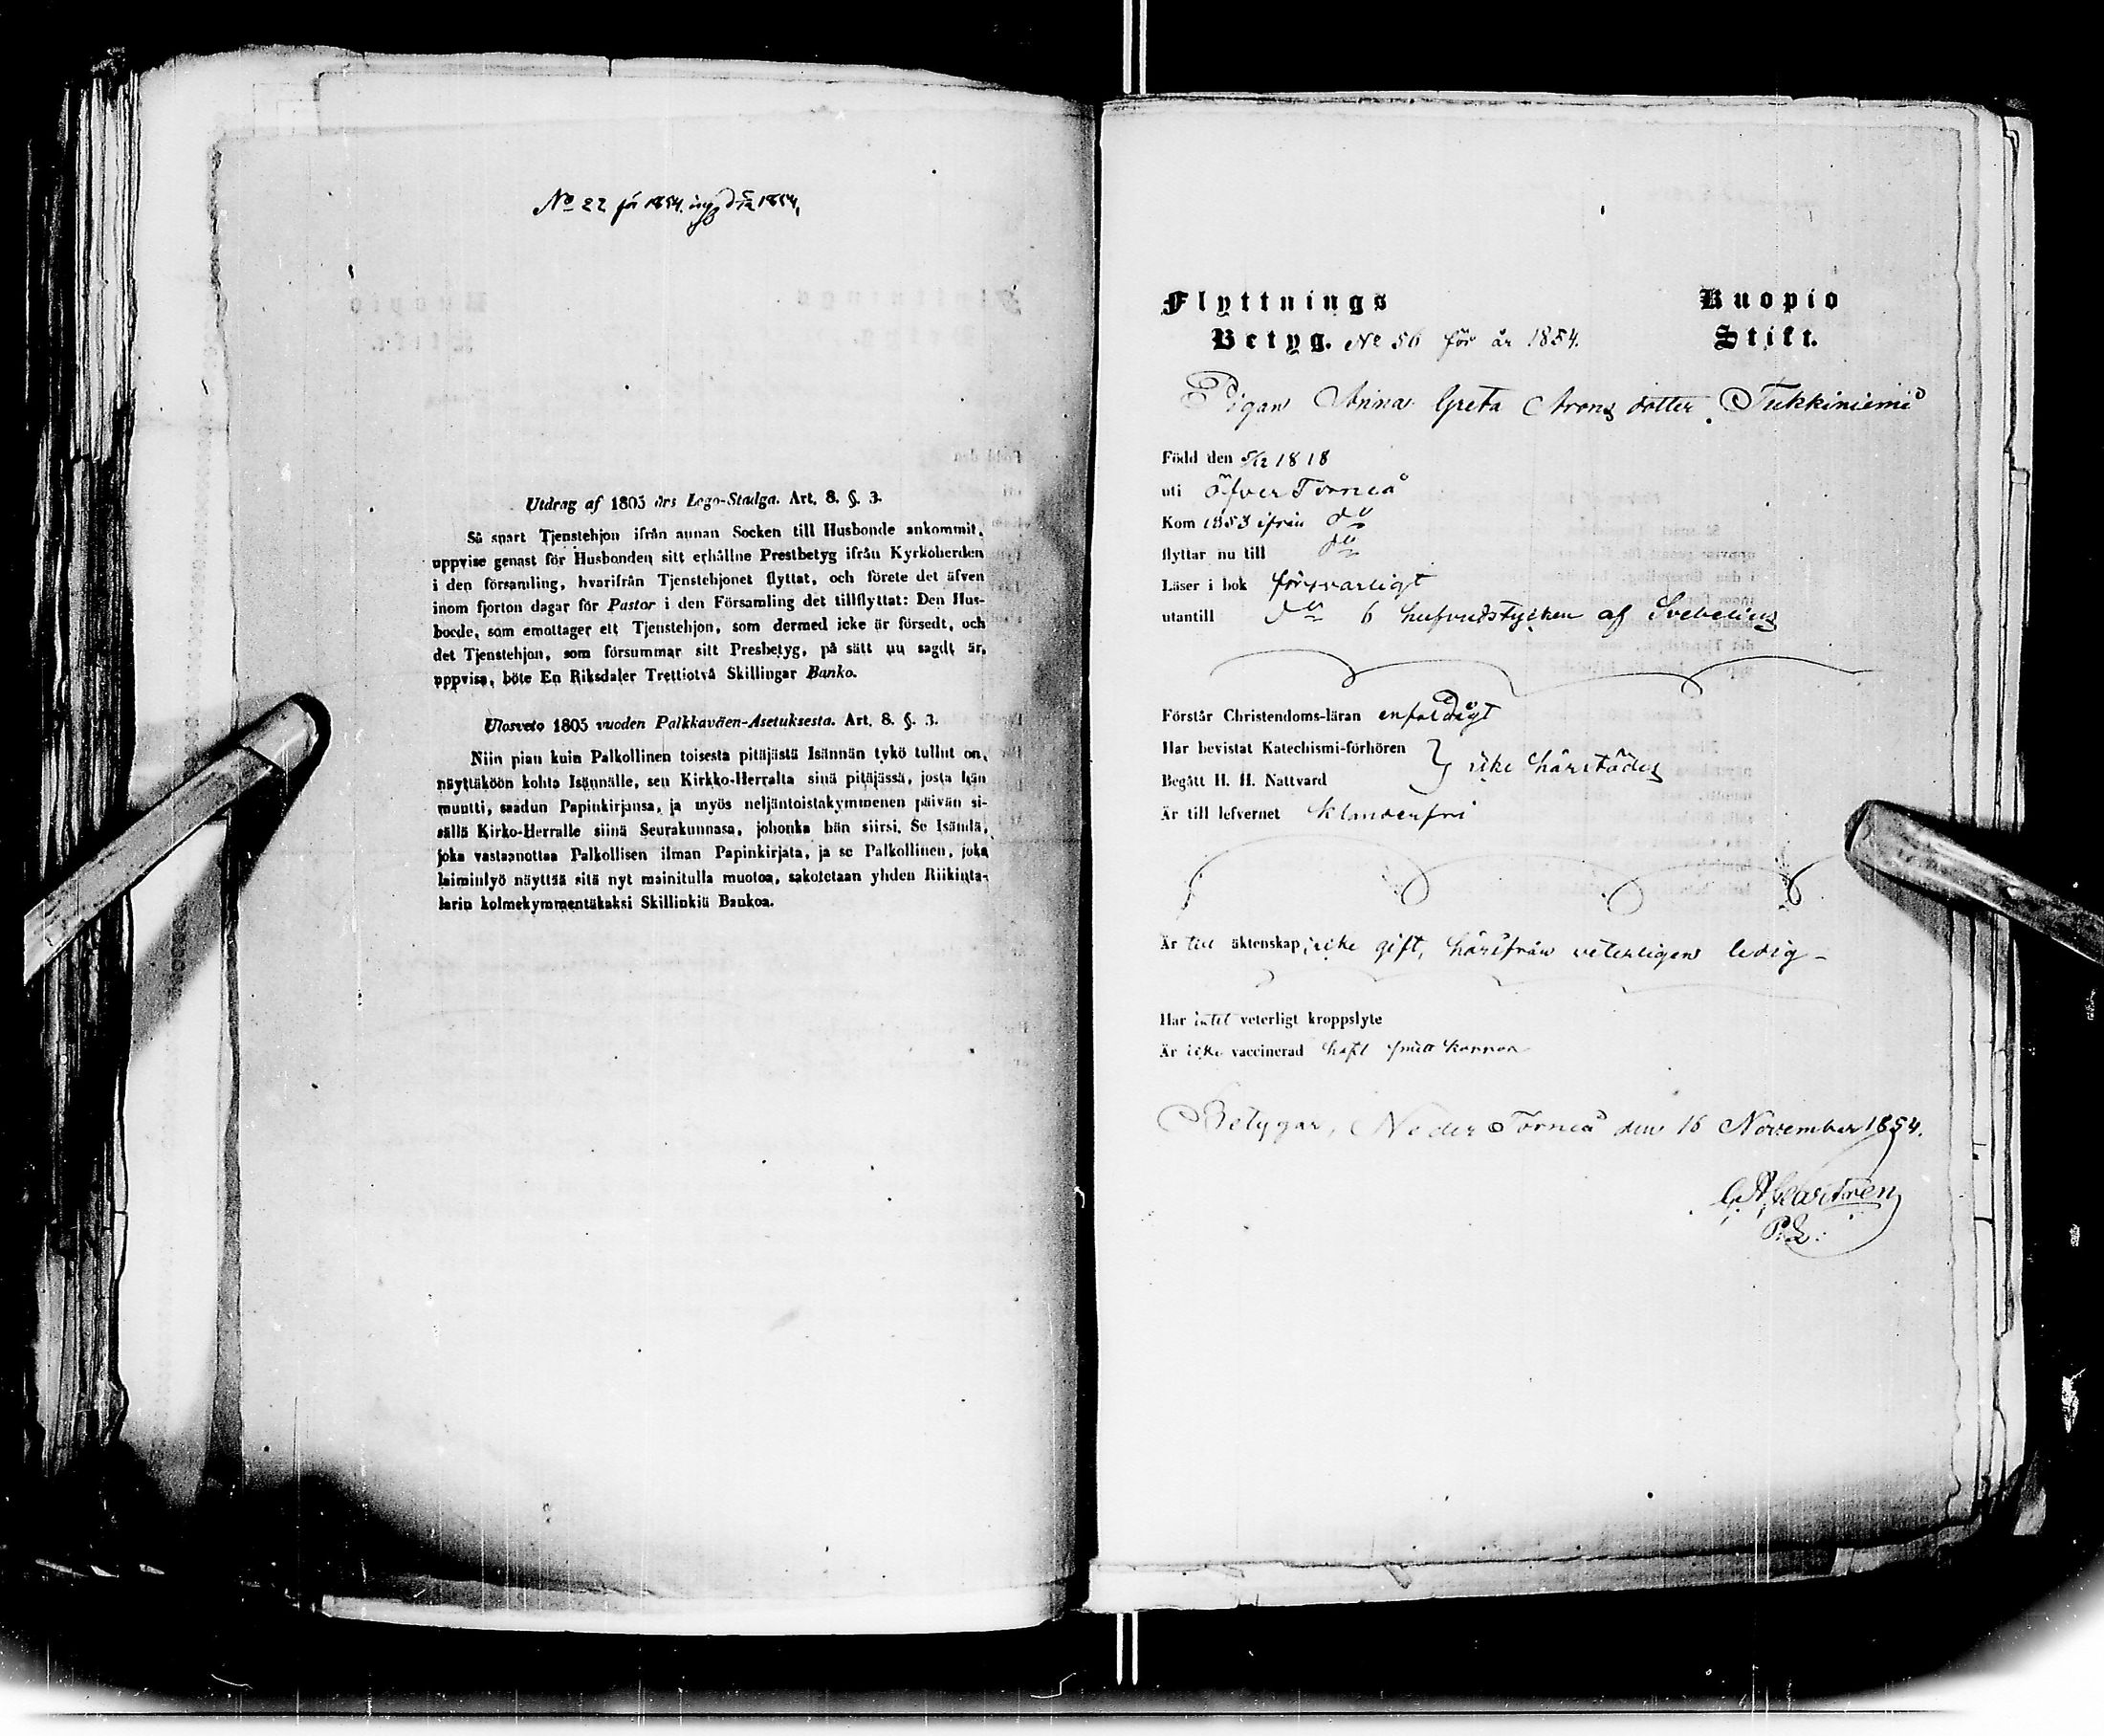 No 22 för 1854.
Utdrag af 1805 års Lego-Stadga. Art. 8. §. 3.
Så snart Tjenstehjon ifrån annan Socken till Husbonde ankommit,
uppvise genast för Husbonden sitt erhållne Prestbetyg ifrån Kyrkoherden
i den församling, hvarifrån Tjenstehjonet flyttat, och förete det äfven
inom fjorton dagar för Pastor i den Församling det tillflyttat: Den Hus-
bonde, som emottager ett Tjenstehjon, som dermed icke är försedt, och
det Tjenstehjon, som försummar sitt Presbetyg, på sätt nu sagdt är,
uppvisa, böte En Riksdaler Trettiotvå Skillingar Banko.
Ulosveto 1805 vuoden Palkkaväen-Asetuksesta. Art. 8. §. 3.
Niin pian kuin Palkollinen toisesta pitäjästä Isännän tykö tullut on,
näyttäköön kohta Isännälle, sen Kirkko-Herralta sinä pitäjässä, josta hän
muutti, saadun Papinkirjansa, ja myös neljäntoistakymmenen päivän si-
sällä Kirko-Herralle siinä Seurakunnasa, johonka hän siirsi. Se Isäntä,
joka vastaanottaa Palkollisen ilman Papinkirjata, ja se Palkollinen, joka
laiminlyö näyttää sitä nyt mainitulla muotoa, sakotetaan yhden Riikinta-
larin kolmekymmentäkaksi Skillinkiä Bankoa.
Flyttnings Kuopio
Betyg. No 56 för år 1854. Stift.
Pigan Anna Greta Arons dotter Tukkiniemi
Född den 5/12 1818
uti Öfver Torneå
Kom 1853 ifrån do
flyttar nu till do
Läser i bok försvarligt
utantill do 6 hufvudstycken af Svebelius
Förstår Christendoms-läran enfaldigt
Har bevistat Katechismi-förhören
Begått H. H. Nattvard icke härstädes
Är till lefvernet klanderfri
Är till äktenskap icke gift, härifrån veterligen ledig
Har intet veterligt kroppslyte
Är icke vaccinerad haft smittkoppor
Betygar, Neder Torneå den 16 November 1854.